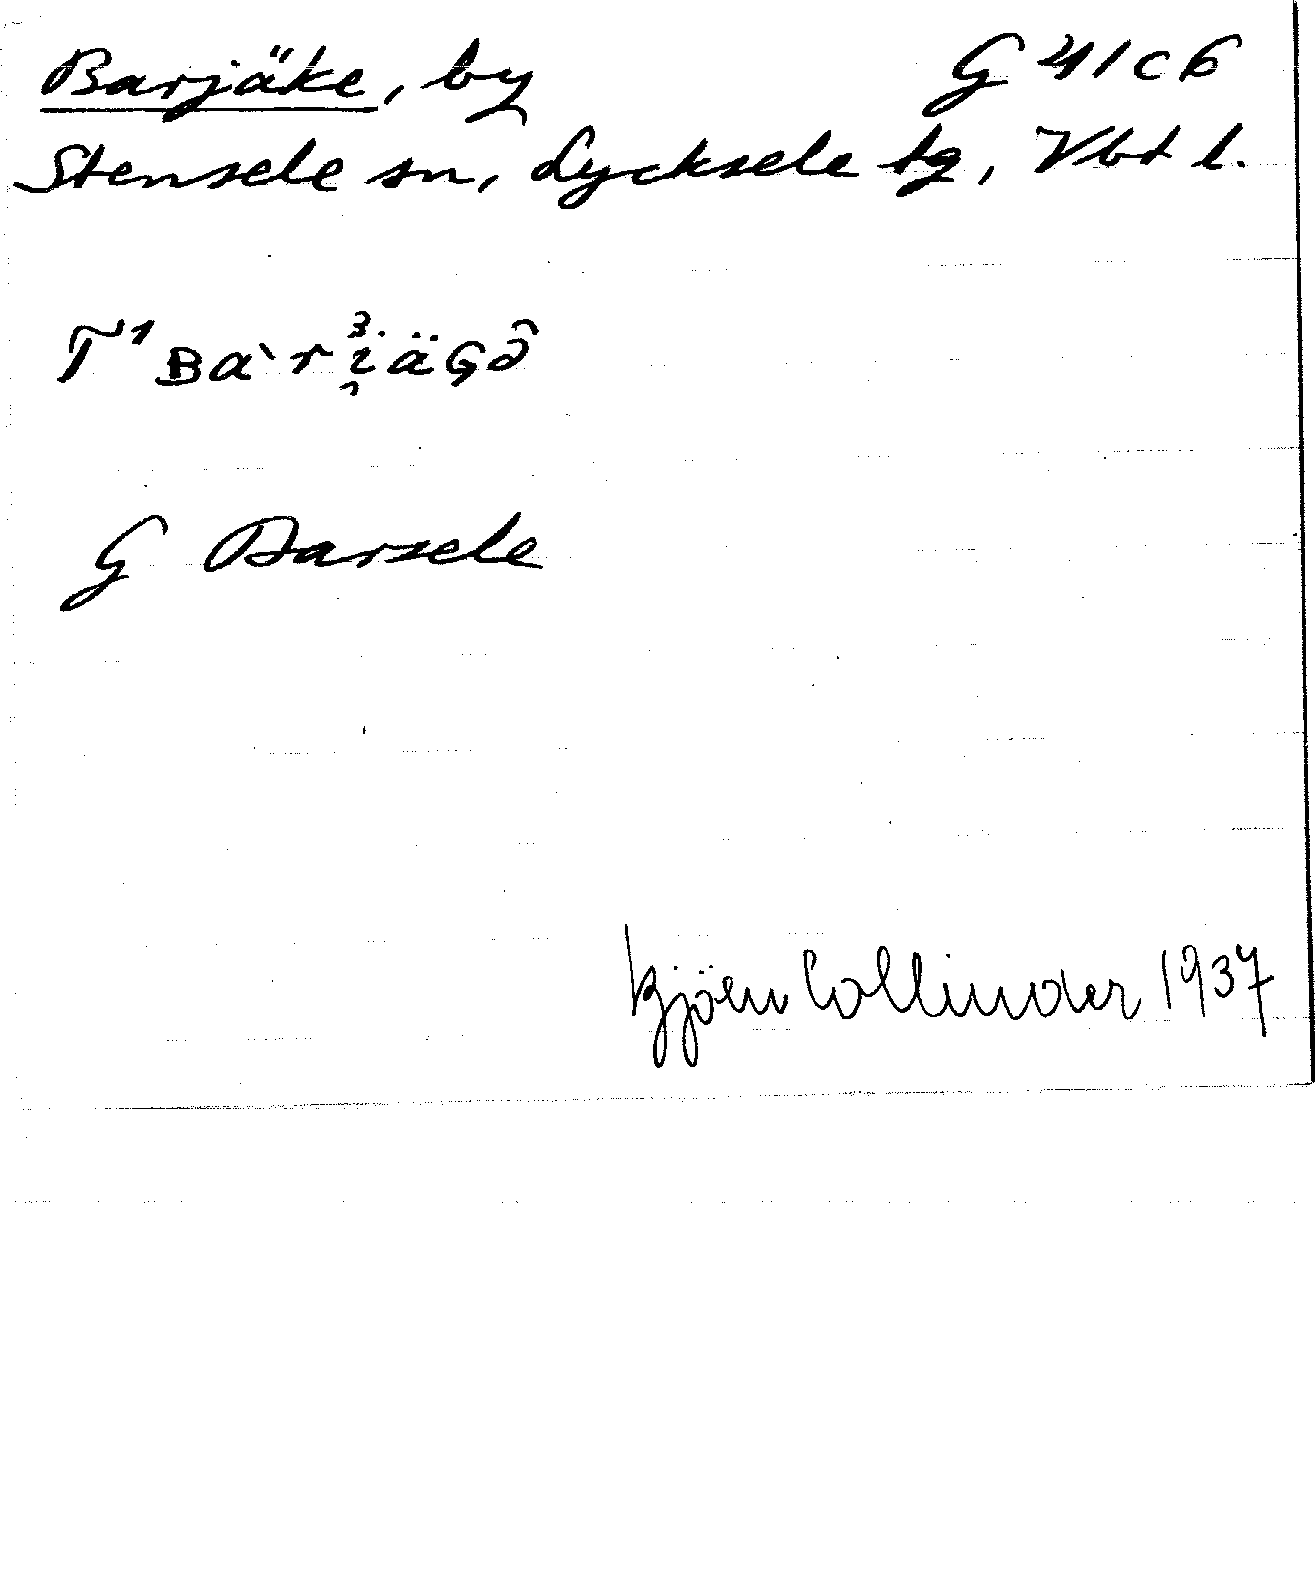 Barjäke, by G 41 c b
Stensele sn, Lycksele tg, Vbt l.
T¹ Ba`ri̯äGə̑
G Barsele
Björn Collinder 1937